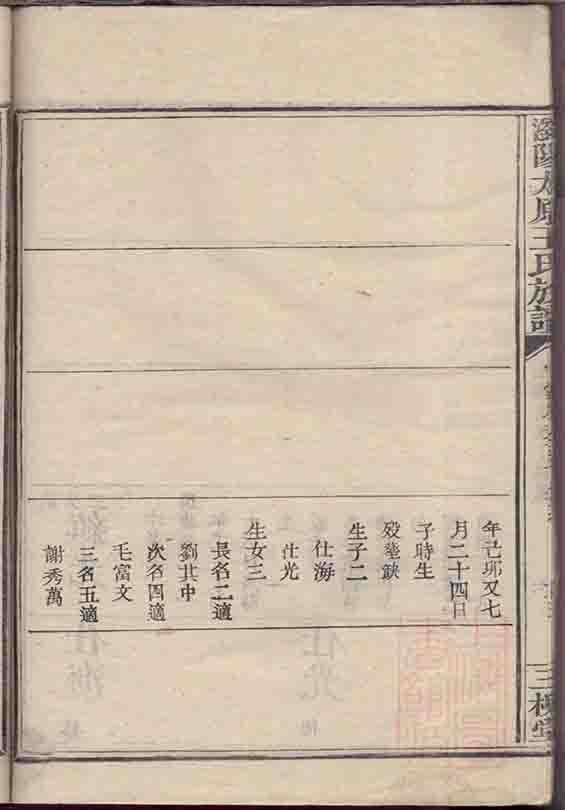 瀏陽太原王氏族譜
三槐堂
年己卯又七
月二十四日
子時生
歿塟缺
生子二
仕海
仕光
生女三
長名二適
劉其中
次名四適
毛富文
三名五適
謝秀萬